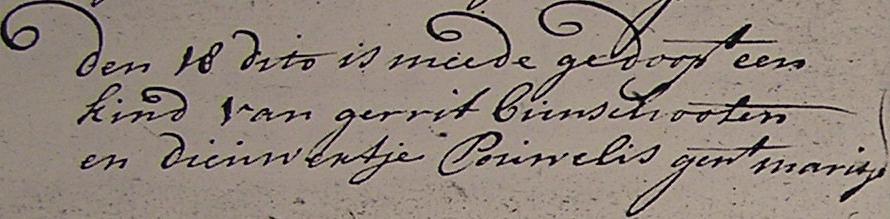 den 18 dito is meede gedoopt een
kind van gerrit bunschooten
en dieuwertje Pouwelis gent maritje